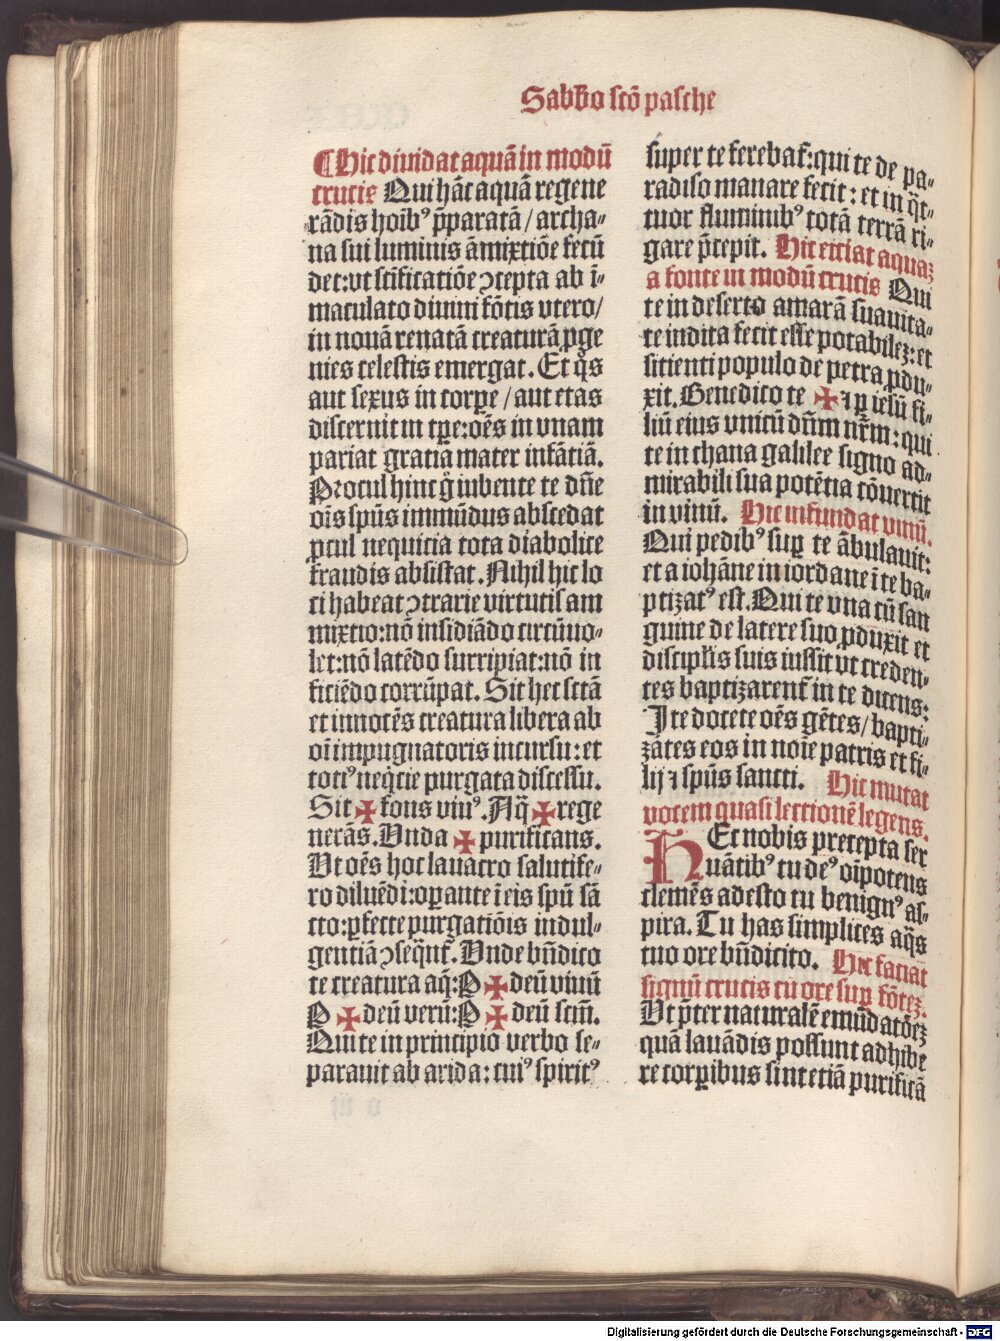 Sabb̄o sctō pasche
¶Hic diuidat aquā in modū
crucis Qui hāc aquā regene
rādis hoīb⁹ p̄paratā / archa-
na sui luminis āmixtiōe fecū
det: vt sc̄ificatiōe ꝯcepta ab ī-
maculato diuini fōtis vtero /
in nouā renatā creaturā ꝓge
nies celestis emergat. Et q̄s
aut sexus in corꝑe / aut etas
discernit in tꝑe: oēs in vnam
pariat gratiā mater infātiā.
Procul hinc ḡ iubente te dn̄e
oīs spūs immūdus abscedat
ꝓcul nequicia tota diabolice
fraudis absistat. Nihil hic lo
ci habeat ꝯtrarie virtutis am
mixtio: nō insidiādo circūuo-
let: nō latēdo surripiat: nō in
ficiēdo corrūpat. Sit hec sctā
et innocēs creatura libera ab
oī impugnatoris incursu: et
toti⁹ neq̄cie purgata discessu.
Sit ✠ fons viu⁹. Aq̄ ✠ rege
nerās. Vnda ✠ purificans.
Vt oēs hoc lauacro salutife-
ro diluēdi: oꝑante ī eis spū sā
cto: ꝑfecte purgatiōis indul-
gentiā ꝯseq̄nt̄. Vnde bn̄dico
te creatura aq̄: P ✠ deū viuū
P ✠ deū verū: P ✠ deū scm̄.
Qui te in principio verbo se-
parauit ab arida: cui⁹ spirit⁹
super te ferebat̄: qui te de pa-
radiso manare fecit: et in q̄t-
tuor fluminib⁹ totā terrā ri-
gare p̄cepit. Hic eiciat aquaꝫ
a fonte in modū crucis Qui
te in deserto amarā suauita-
te indita fecit esse potabileꝫ: et
sitienti populo de petra ꝓdu-
xit. Benedico te ✠ ⁊ ꝑ iesū fi-
liū eius vnicū dn̄m nr̄m: qui
te in chana galilee signo ad-
mirabili sua potētia cōuertit
in vinū. Hic infundat vinū.
Qui pedib⁹ suꝑ te ābulauit:
et a iohāne in iordane ī te ba-
ptizat⁹ est. Qui te vna cū san
guine de latere suo ꝓduxit et
discipl̄is suis iussit vt creden-
tes baptizarent̄ in te dicens:
Ite docete oēs gētes / bapti-
zātes eos in noīe patris et fi-
lij ⁊ spūs sancti. Hic mutat
vocem quasi lectionē legens.
HEc nobis precepta ser
uātib⁹ tu de⁹ oīpotens
clemēs adesto tu benign⁹ as-
pira. Tu has simplices aq̄s
tuo ore bn̄dicito. Hic faciat
signū crucis cū ore suꝑ fōteꝫ.
Vt p̄ter naturalē emūdatōeꝫ
quā lauādis possunt adhibe
re corꝑibus sint etiā purificā
Digitalisierung gefördert durch die Deutsche Forschungsgemeinschaft - DFG